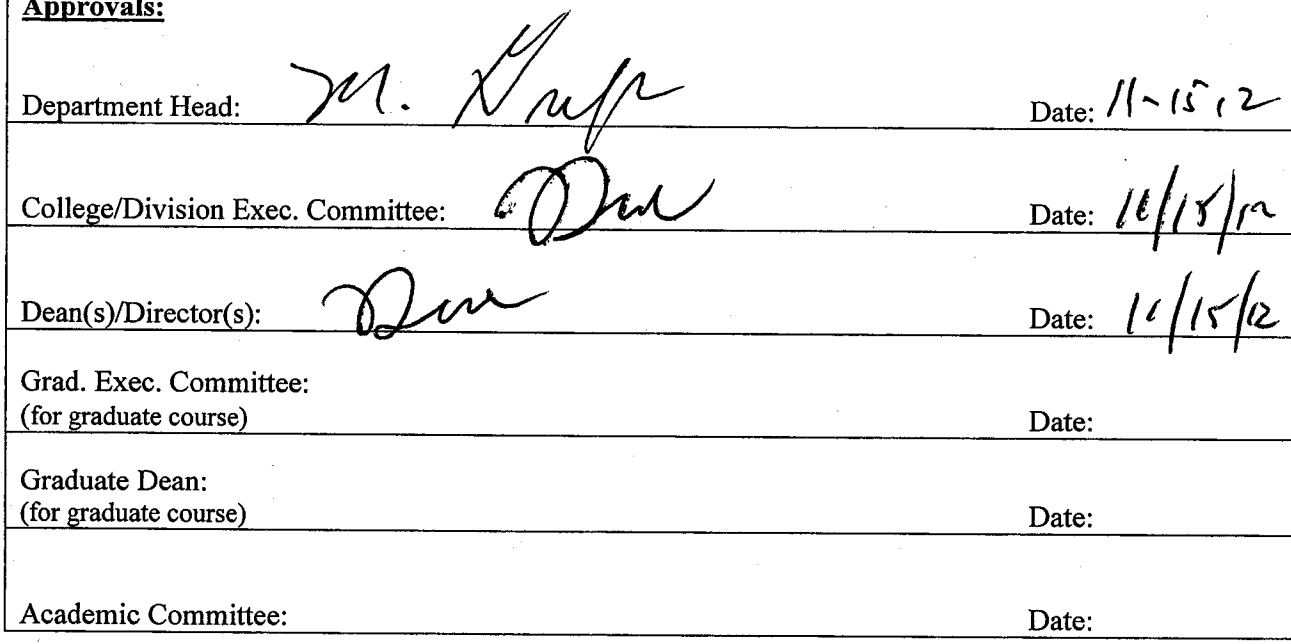 Approvals:
Department Head: M. Date: 11-15-12
College/Division Exec. Committee: Date: 11/15/12
Dean(s)/Director(s): Date: 11/15/12
Grad. Exec. Committee:
(for graduate course) Date:
Graduate Dean:
(for graduate course) Date:
Academic Committee: Date: